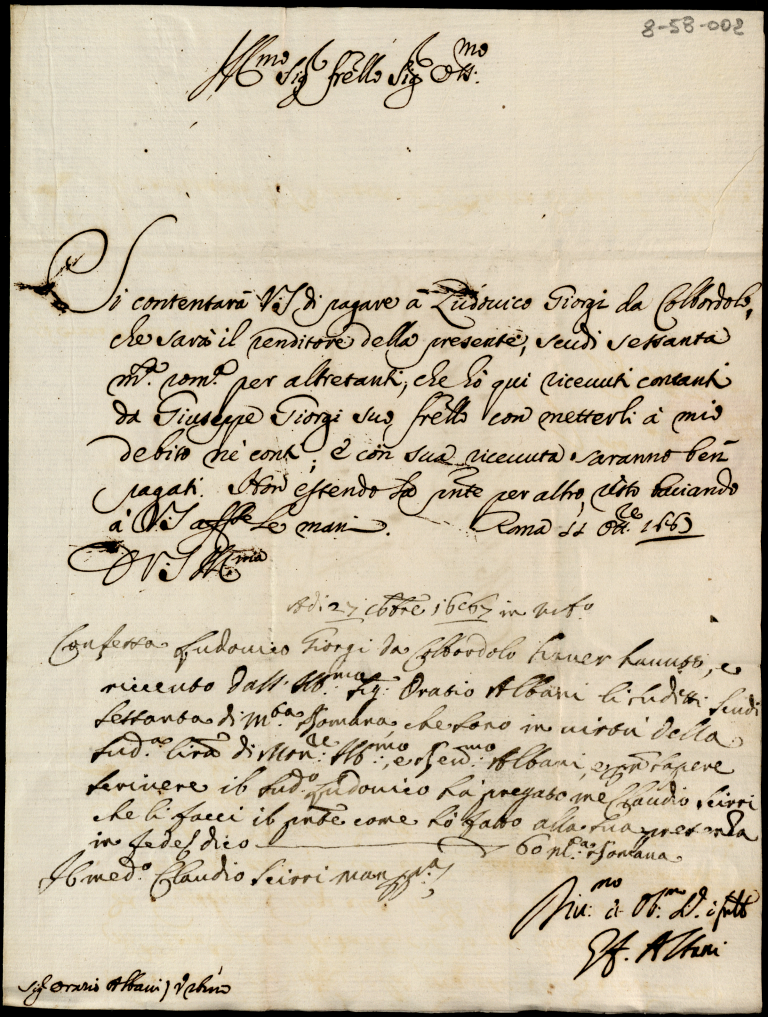 8-58-002
Ill.mo Sig.r frello Sig.r Oss:mo
Si contentarà V.S. di pagare à Ludovico Giorgi da Colbordolo,
che sarà il venditore della presente, scudi settanta
m.ta rom.a per altretanti, che hò qui ricevuti contanti
da Giuseppe Giorgi suo frello con metterli à mio
debito nè conti, è con sua ricevuta saranno ben
pagati. Non essendo la pnte per altro, resto baciando
à V.S. affte le mani. Roma 11 Ott.re 1663
D V.S. Ill.ma
Adi 27 8bre 1663 in Urb.o
Confessa Ludovico Giorgi da Colbordolo haver hauuto, e
riceuuto dall' Ill.mo Sig. Oratio Albani li sudetti scudi
settanta di m.ta Romana che sono in uirtù della
sud.a lra di Mon.re Ill.mo, e Reu.mo Albani, e non sapere
scriuere il sud.o Ludovico ha pregato me Claudio Scirri
che li facci il pnte come hò fatto alla sua presenza
in fede dico 60 m.a Romana
Il med.o Claudio Scirri man pp.a
Diu.mo et Ob.mo S.r. e frello
Albani
Sig. Oratio Albani / Urbino